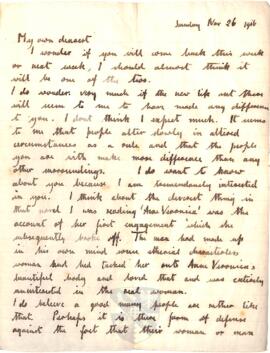 Sunday Nov 26 1916
My own dearest
I wonder if you will come back this week
or next week, I should almost think it
will be one of the two.
I do wonder very much if the new life out there
will seem to me to have made any difference
to you. I dont think I expect much. It seems
to me that people alter slowly in altered
circumstances as a rule and that the people
you are with make more difference than any
other surroundings. I do want to know
about you because I am tremendously interested
in you. I think about the divorce thing in
that novel I was reading 'Ann Veronica' was the
account of her first engagement which she
subsequently broke off. The man had made up
in his own mind some characterless
woman had tacked her onto Ann Veronica's
beautiful body and loved that and was entirely
uninterested in the real woman.
I do believe a good many people are rather like
that. Perhaps it is their form of defense
against the fact that their woman or man